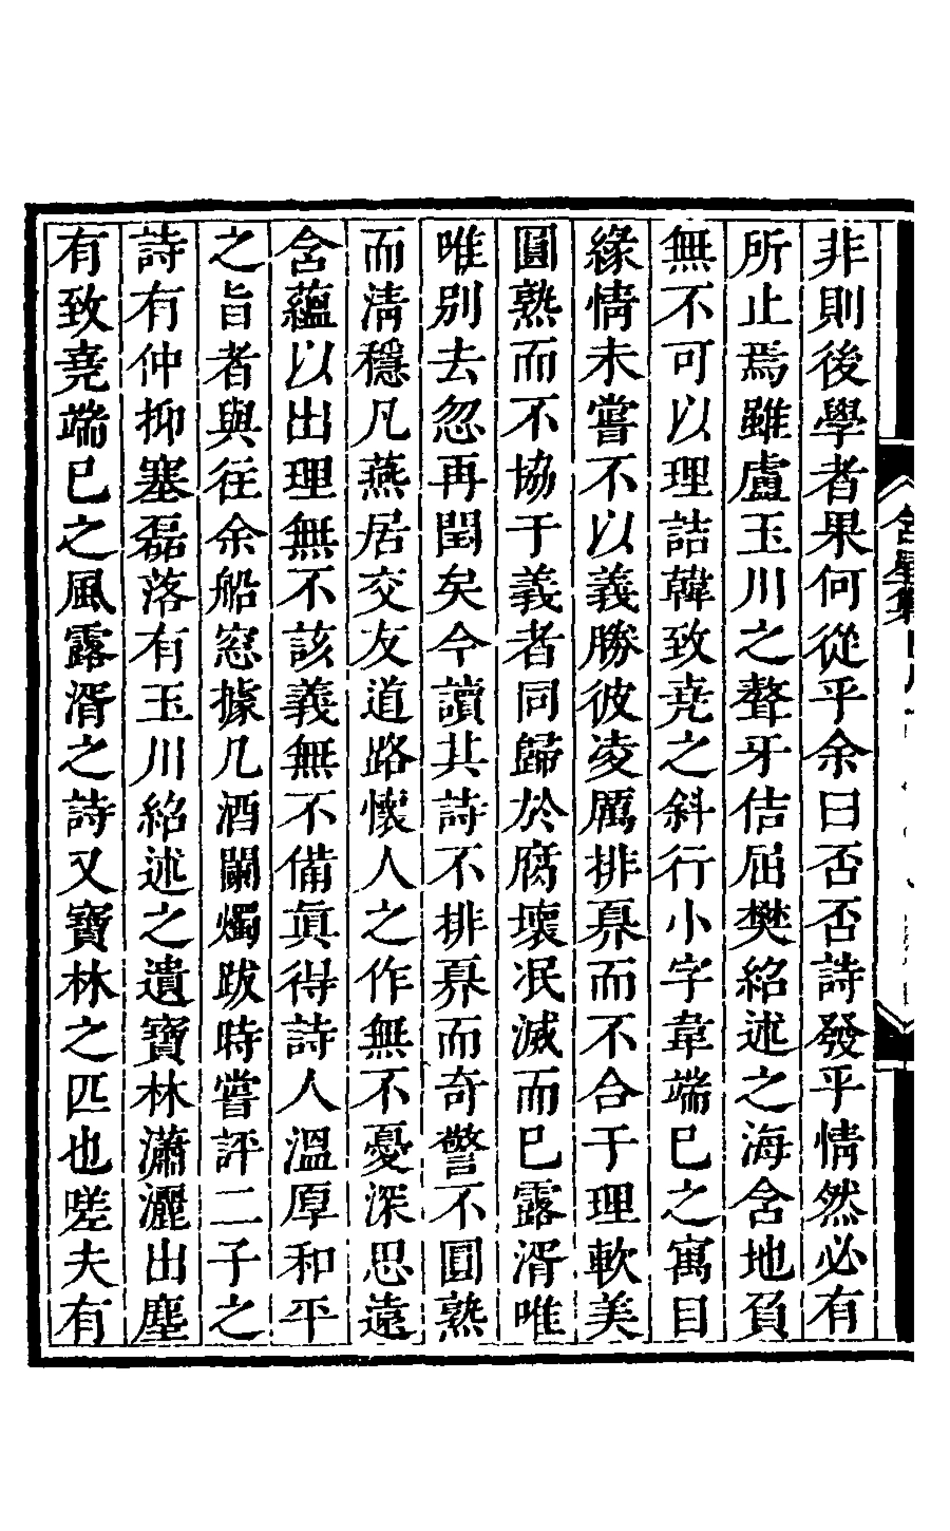 非則後學者果何從乎余曰否否詩發乎情然必有
所止焉雖盧玉川之聱牙佶屈樊紹述之海含地負
無不可以理詰韓致堯之斜行小字韋端已之寓目
緣情未嘗不以義勝彼凌厲排奡而不合于理軟美
圓熟而不協于義者同歸於腐壞泯滅而已露湑唯
唯別去忽再閏矣今讀其詩不排奡而奇警不圓熟
而淸穩凡燕居交友道路懷人之作無不憂深思遠
含蘊以出理無不該義無不備眞得詩人溫厚和平
之旨者與往余船窓據几酒闌燭跋時嘗評二子之
詩有仲抑塞磊落有玉川紹述之遺寶林瀟灑出塵
有致堯端已之風露湑之詩又寶林之匹也嗟夫有